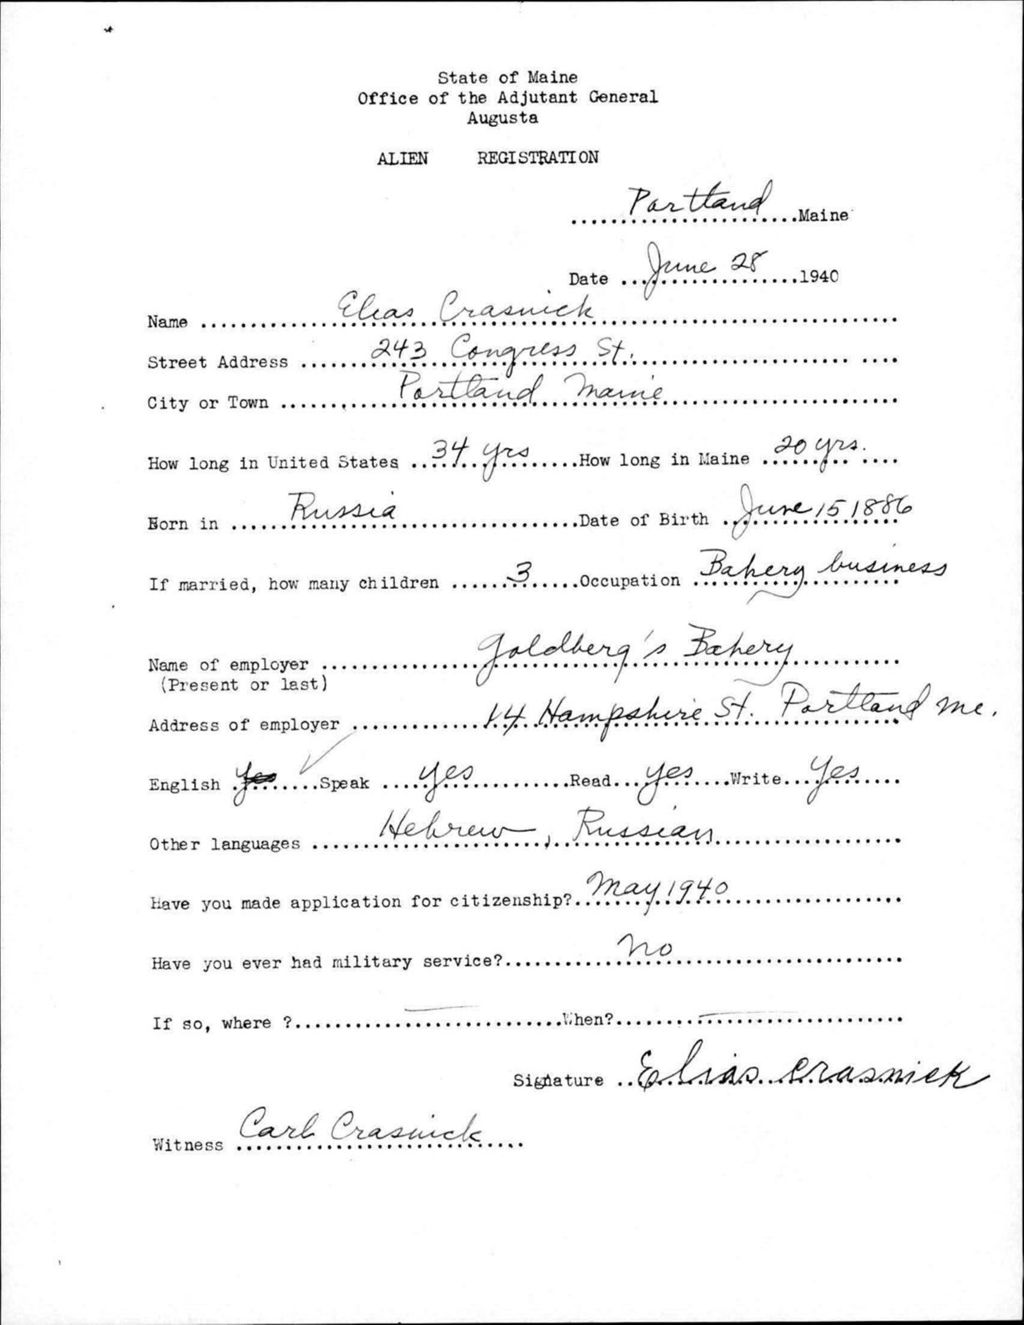 State of Maine
Office of the Adjutant General
Augusta
ALIEN REGISTRATION
Portland Maine
Date June 28 1940
Name Elias Crasnick
Street Address 243 Congress St.
City or Town Portland Maine
How long in United States 34 yrs How long in Maine 20 yrs.
Born in Russia Date of Birth June 15 1886
If married, how many children 3 Occupation Bakery business
Name of employer Goldberg's Bakery
(Present or last)
Address of employer 14 Hampshire St. Portland Me.
English Yes Speak yes Read yes Write Yes
Other languages Hebrew, Russian
Have you made application for citizenship? May 1940
Have you ever had military service? No
If so, where ? When?
Signature Elias Crasnick
Witness Carl Crasnick